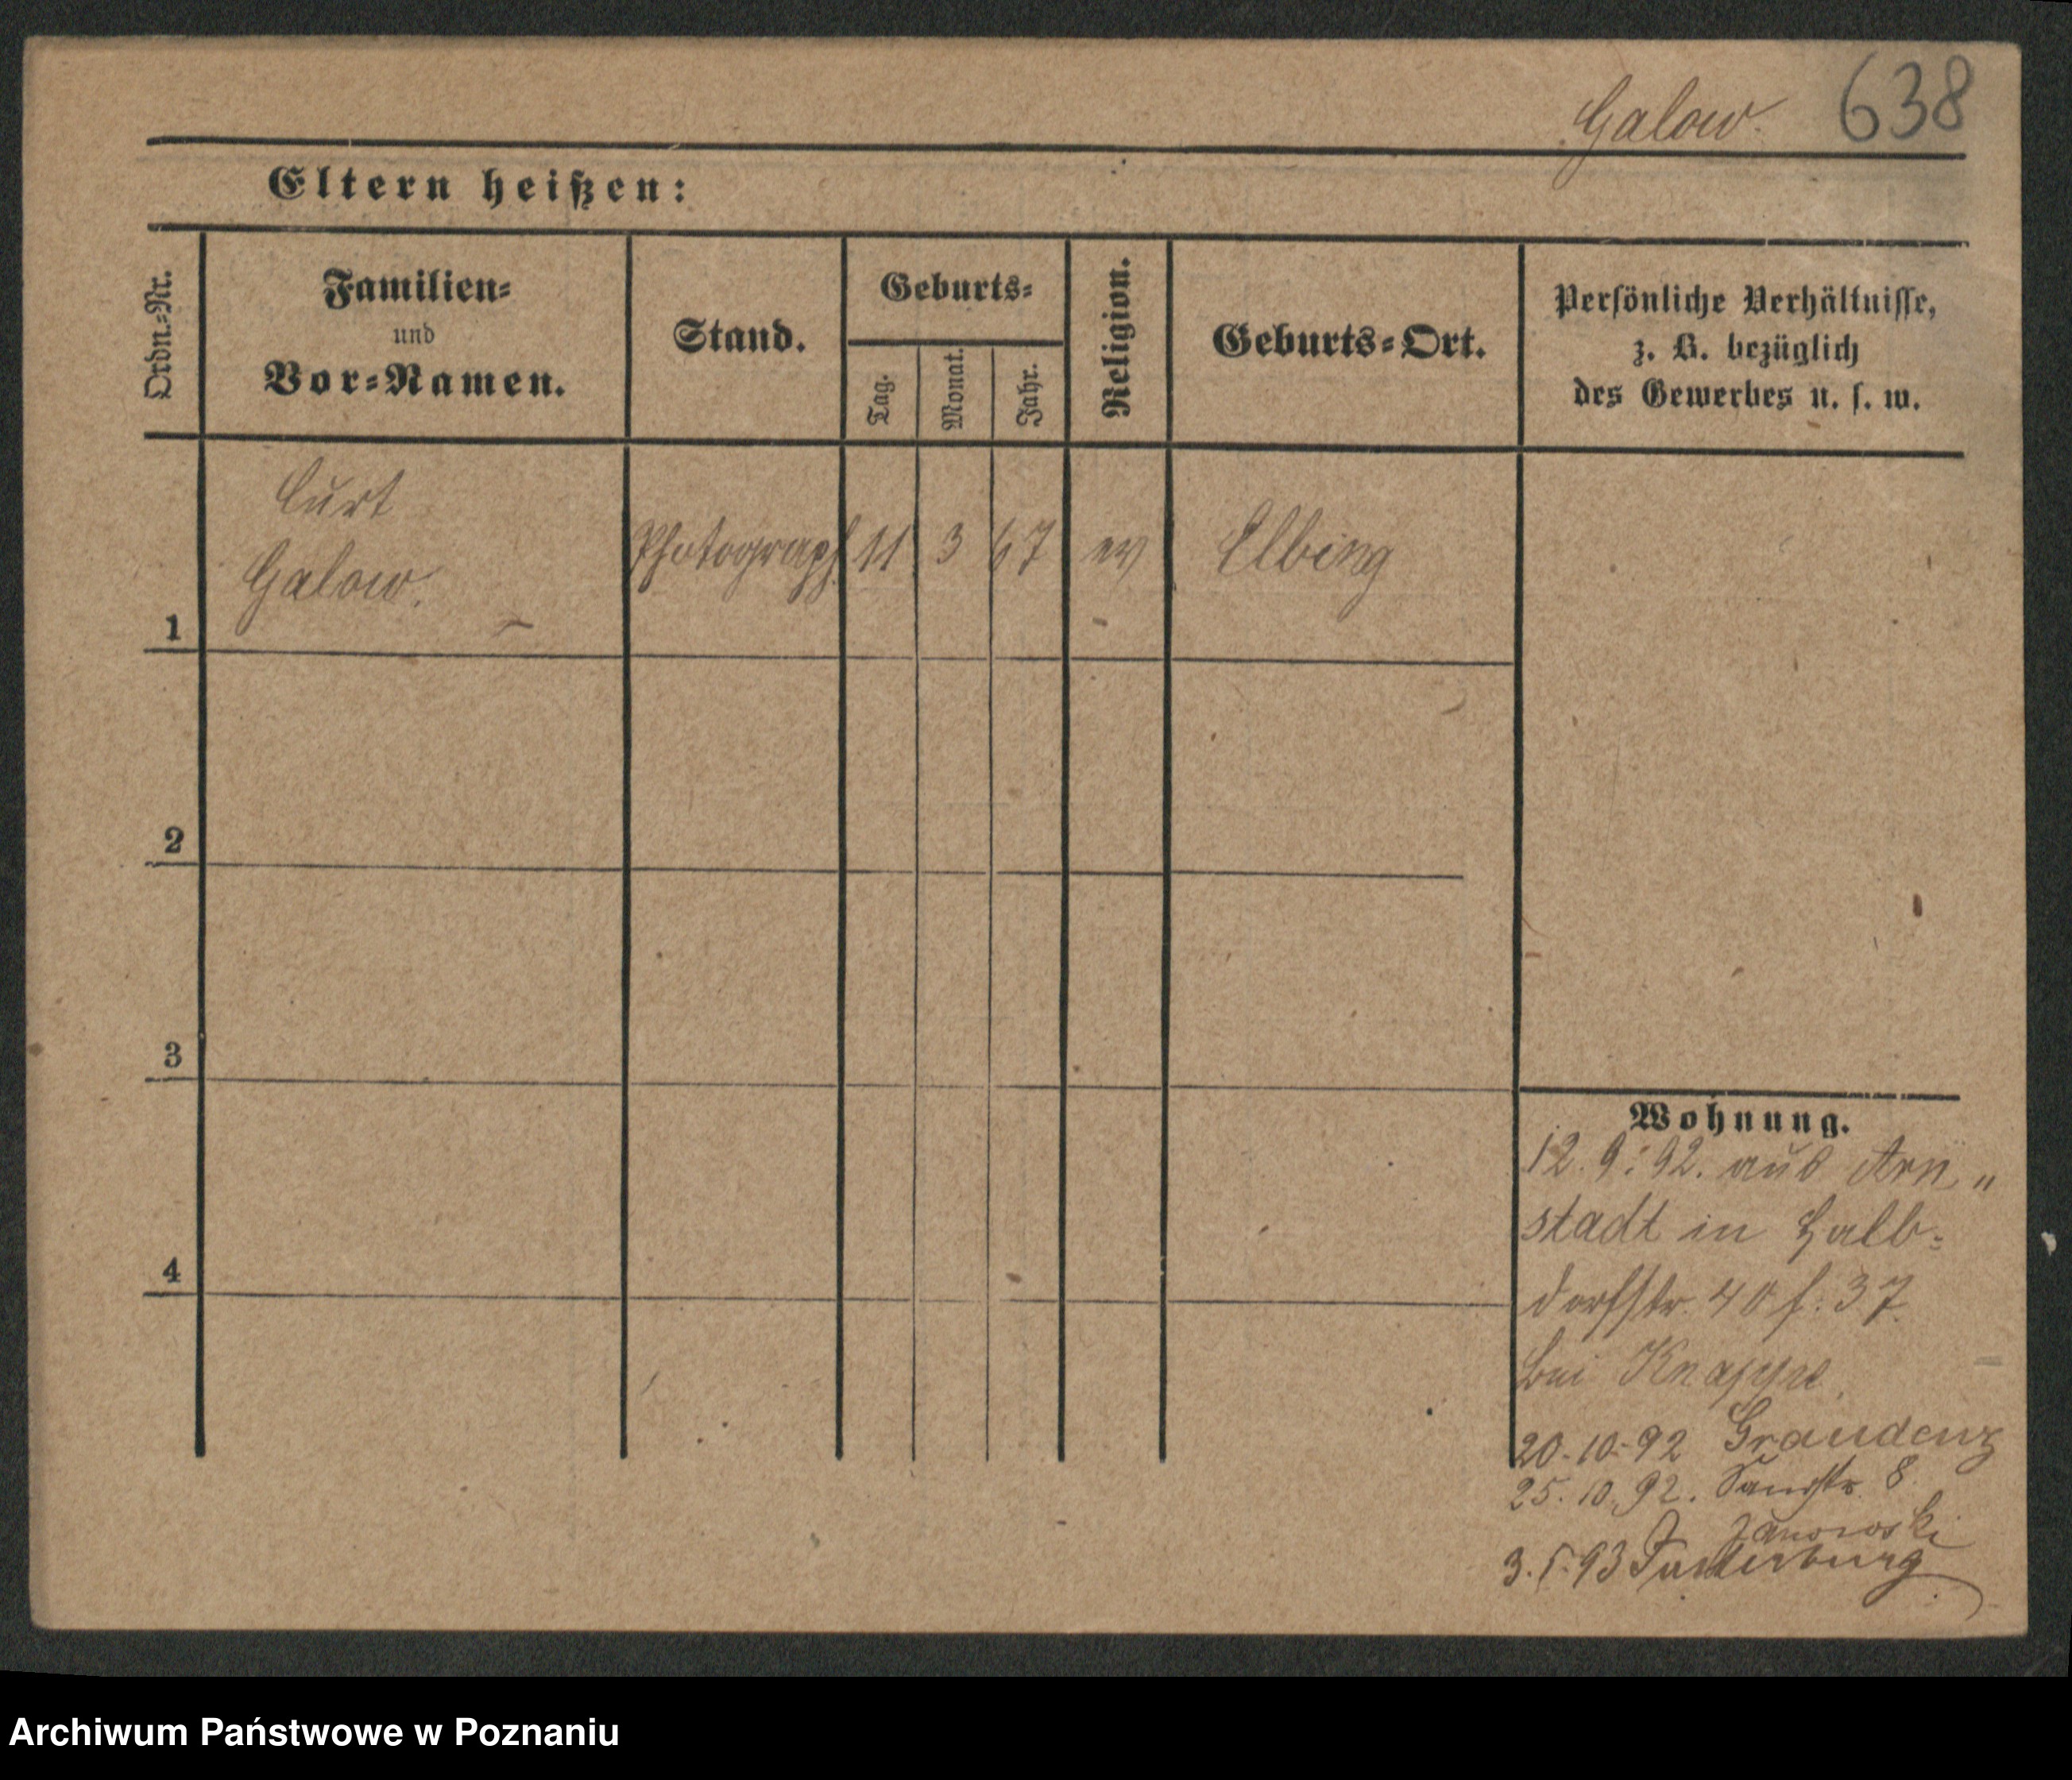 Galow. 638
Eltern heißen:
Ordn.-Nr.
Familien-
und
Vor-Namen.
Stand.
Geburts-
Tag.
Monat.
Jahr.
Religion.
Geburts-Ort.
Persönliche Verhältnisse,
z. B. bezüglich
des Gewerbes u. s. w.
Curt
Galow.
Photograph 11 3 67 ev Elbing
1
2
3
4
Wohnung.
12. 9. 92. aus Arn„
stadt in Halb-
dorfstr. 40 f. 37.
bei Knappe.
20.10.92 Graudenz
25.10.92. Sandstr. 8
Janowski
3. 93